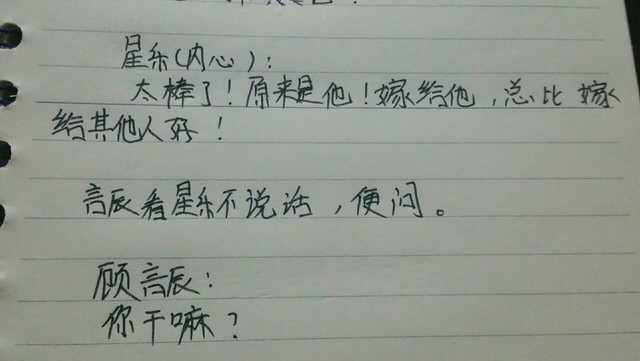 星乐(内心):
太棒了!原来是他!嫁给他,总比嫁
给其他人好!
言辰看星乐不说话,便问。
顾言辰:
你干嘛?